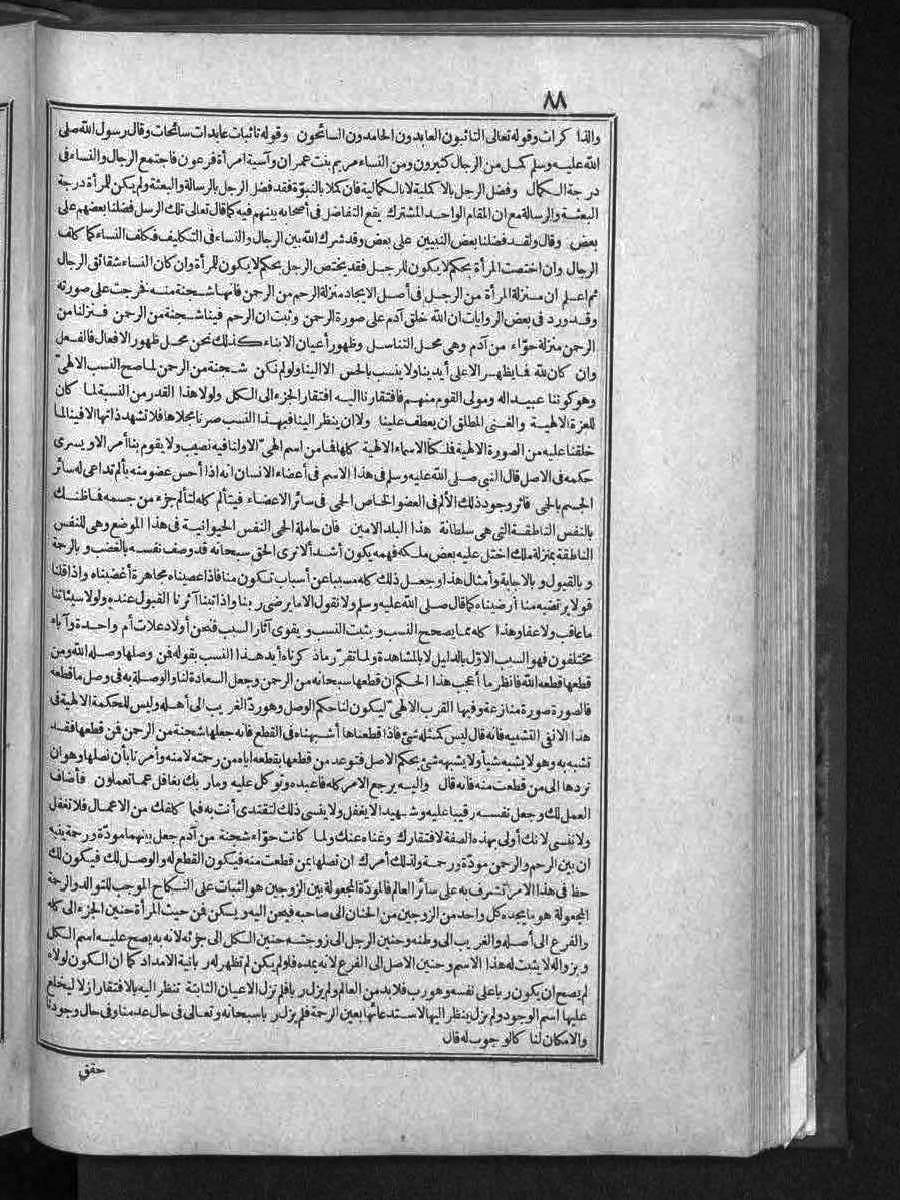 ٨٨
والذا كرات وقوله تعالى التائبون العابدون الحامدون السائحون وقوله تائبات عابدات سائحات وقال رسول الله صلى
الله عليه وسلم كمل من الرجال كثيرون ومن النساء مريم بنت عمران وآسية امرأة فرعون فاجتمع الرجال والنساء فى
درجة الكمال وفضل الرجل بالاكملية لابالكمالية فان كملا بالنبوة فقد فضل الرجل بالرسالة والبعثة ولم يكن للمرأة درجة
البعثة والرسالة مع ان المقام الواحد المشترك يقع التفاضل فى أصحابه بينهم فيه كما قال تعالى تلك الرسل فضلنا بعضهم على
بعض وقال ولقد فضلنا بعض النبيين على بعض وقد شرك الله بين الرجال والنساء فى التكليف فكلف النساء كما كلف
الرجال وان اختصت المرأة بحكم لا يكون للرجل فقد يختص الرجل بحكم لا يكون للمرأة وان كان النساء شقائق الرجال
ثم اعلم ان منزلة المرأة من الرجل فى أصل الايجاد منزلة الرحم من الرحمن فانها شحنة منه فخرجت على صورته
وقد ورد فى بعض الروايات ان الله خلق آدم على صورة الرحمن وثبت ان الرحم فينا شحنة من الرحمن فنزلنا من
الرحمن منزلة حواء من آدم وهى محل التناسل وظهور أعيان الابناء كذلك نحن محل ظهور الافعال فالفعل
وان كان لله فما يظهر الا على أيدينا ولا ينسب بالحس الا الينا ولو لم نكن شحنة من الرحمن لما صح النسب الالهىّ
وهو كوننا عبيدا له ومولى القوم منهم فافتقارنا اليه افتقار الجزء الى الكل ولولا هذا القدر من النسبة لما كان
للعزة الالهية والغنى المطلق ان يعطف علينا ولا ان ينظر الينا فبهذا النسب صرنا مجلاها فلا تشهد ذاتها الا فينا لما
خلقنا عليه من الصورة الالهية فلكنا الاسماء الالهية كلها فما من اسم الهىّ الا ولنا فيه نصيب ولا يقوم بنا أمر الا ويسرى
حكمه فى الاصل قال النبى صلى الله عليه وسلم فى هذا الاسم فى أعضاء الانسان انه اذا أحس عضو منه بألم تداعى له سائر
الجسم بالحمى فاثر وجود ذلك الألم فى العضو الخاص الحمى فى سائر الاعضاء فيتألم كله لتألم جزء من جسمه فما ظنك
بالنفس الناطقة التى هى سلطانة هذا البلد الامين فان حاملة الحمى النفس الحيوانية فى هذا الموضع وهى للنفس
الناطقة بمنزلة ملك اختل عليه بعض ملكه فهمه يكون أشد ألا ترى الحق سبحانه قد وصف نفسه بالغضب و بالرحمة
و بالقبول و بالاجابة وأمثال هذا وجعل ذلك كله مسببا عن أسباب تكون منا فاذا عصيناه مجاهرة أغضبناه واذا قلنا
قولا يرتضيه منا أرضيناه كما قال صلى الله عليه وسلم ولا نقول الا ما يرضى ربنا واذا تبنا آثرنا القبول عنده ولولا سيئاتنا
ما عاقب ولا عفا وهذا كله مما يصحح النسب و يثبت النسب و يقوى آثار السبب فنحن أولاد علات أم واحدة وآباء
مختلفون فهو السبب الاوّل بالدليل لا بالمشاهدة ولما تقرّر ما ذكرناه أيد هذا النسب بقوله فمن وصلها وصله الله ومن
قطعها قطعه الله فانظر ما أعجب هذا الحكم ان قطعها سبحانه من الرحمن وجعل السعادة لنا والوصلة به فى وصل ما قطعه
فالصورة صورة منازعة وفيها القرب الالهىّ ليكون لنا حكم الوصل وهو ردّ الغريب الى أهله وليس للحكمة الالهية فى
هذا الا نفى التشبيه فانه قال ليس كمثله شئ فاذا قطعناها أشبهناه فى القطع فانه جعلها شحنة من الرحمن فمن قطعها فقد
تشبه به وهو لا يشبه شيأ ولا يشبهه شئ بحكم الاصل فتوعد من قطعها بقطعه اياه من رحمته لا منه وأمرنا بأن نصلها وهو ان
نردها الى من قطعت منه فانه قال واليه يرجع الامر كله فاعبده وتوكل عليه وما ربك بغافل عما تعملون فأضاف
العمل لك وجعل نفسه رقيبا عليه وشهيدا لا يغفل ولا ينسى ذلك لتقتدى أنت به فيما كلفك من الاعمال فلا تغفل
ولا تنسى لانك أولى بهذه الصفة لافتقارك وغناه عنك ولما كانت حوّاء شحنة من آدم جعل بينهما مودّة ورحمة ينبه
ان بين الرحم والرحمن مودّة ورحمة ولذلك أمرك ان تصلها بمن قطعت منه فيكون القطع له والوصل لك فيكون لك
حظ فى هذا الامر تشرف به على سائر العالم فالمودّة المجعولة بين الزوجين هو الثبات على النكاح الموجب للتوالد والرحمة
المجعولة هو ما يجده كل واحد من الزوجين من الحنان الى صاحبه فيحن اليه و يسكن فمن حيث المرأة حنين الجزء الى كله
والفرع الى أصله والغريب الى وطنه وحنين الرجل الى زوجته حنين الكل الى جزئه لانه به يصح عليه اسم الكل
و بزواله لا يثبت له هذا الاسم وحنين الاصل الى الفرع لانه يمده فلو لم يكن لم تظهر له ربانية الامداد كما ان الكون لولاه
لم يصح ان يكون ربا على نفسه وهو رب فلا بد من العالم ولم يزل ربا فلم تزل الاعيان الثابتة تنظر اليه بالافتقار ازلا ليخلع
عليها اسم الوجود ولم يزل ينظر اليها لاستدعائها بعين الرحمة فلم يزل ربا سبحانه وتعالى فى حال عدمنا وفى حال وجودنا
والامكان لنا كالوجوب له قال
حقق